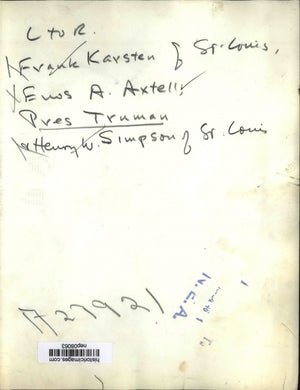 L to R.
Frank Karsten of St. Louis,
Enos A. Axtell
Pres Truman
Henry W. Simpson of St. Louis
A27921
N.E.A.
To
historicimages.com
nep08063